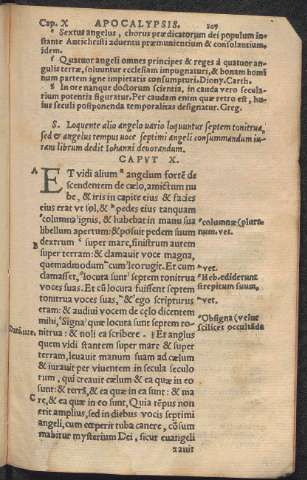 Cap. X APOCALYPSIS. 209
Sextus angelus, chorus prædicatorum dei populum in-
stante Antichristi aduentu præmunientium & consolantium,
idem.
Quatuor angeli omnes principes & reges à quatuor an-
gulis terræ, soluuntur ecclesiam impugnaturi, & bonam homi
num partem igne impietatis consumpturi. Diony. Carth.
In ore nanque doctorum scientia, in cauda vero secula-
rium potentia figuratur. Per caudam enim quæ retro est, hu-
ius seculi postponenda temporalitas designatur. Greg.
S. Loquente alio angelo vario loquuntur septem tonitrua,
sed & angelus tempus voce septimi angeli consummandum iu-
rans librum dedit Iohanni deuorandum.
CAPVT X.
A
ET vidi alium angelum fortē de
scendentem de cælo, amictum nu
be, & iris in capite eius & facies
eius erat vt sol, & pedes eius tanquam
columna ignis, & habebat in manu sua
libellum apertum: & posuit pedem suum
B
dextrum super mare, sinistrum autem
super terram: & clamauit voce magna,
quemadmodum cum leo rugit. Et cum
clamasset, locuta sunt septem tonitrua
voces suas. Et cū locuta fuissent septem
tonitrua voces suas, & ego scripturus
eram: & audiui vocem de cælo dicentem
mihi, Signa quæ locuta sunt septem to-
nitrua: & noli ea scribere. Et angelus
quem vidi stantem super mare & super
terram, leuauit manum suam ad cælum
& iurauit per viuentem in secula seculo
rum, qui creauit cælum & ea quæ in eo
sunt: & terrā, & ea quæ in ea sunt: & ma
C
re, & ea quæ in eo sunt, Quia tēpus non
erit amplius, sed in diebus vocis septimi
angeli, cum cœperit tuba canere, cōsum
mabitur mysterium Dei, sicut euangeli
zauit
columnæ (plura.
num. vet.
vet.
Heb. ediderunt
strepitum suum,
vet.
Obsigna (velut
scilicet occultāda